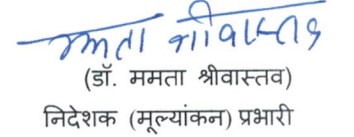 ममता श्रीवास्तव
(डॉ. ममता श्रीवास्तव)
निदेशक (मूल्यांकन) प्रभारी